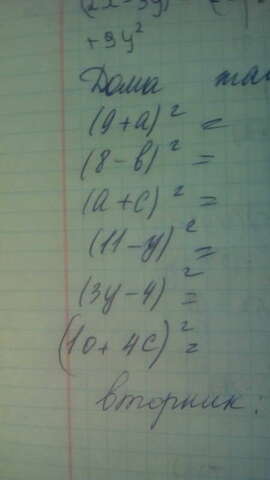 (2x-3y)
+9y²
Дома
(9+a)² =
(8-в)² =
(a+c)² =
(11-y)² =
(3y-4)² =
(10+4c)² =
вторник: